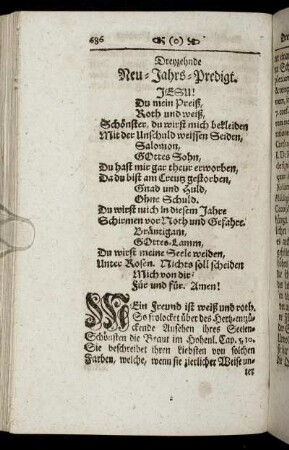 686 (o)
Dreyzehnde
Neu-Jahrs-Predigt.
JESU!
Du mein Preiß,
Roth und weiß,
Schönster, du wirst mich bekleiden
Mit der Unschuld weissen Seiden,
Salomon,
GOttes Sohn,
Du hast mir gar theur erworben,
Da du bist am Creutz gestorben,
Gnad und Huld,
Ohne Schuld.
Du wirst mich in diesem Jahre
Schirmen vor Noth und Gefahre.
Bräutigam,
GOttes-Lamm,
Du wirst meine Seele weiden,
Unter Rosen. Nichts soll scheiden
Mich von dir
Für und für. Amen!
MEin Freund ist weiß und roth.
So frolocket über des Hertz-entzü-
ckende Ansehen ihres Seelen-
Schönsten die Braut im Hohenl. Cap. 5, 10.
Sie beschreibet ihren Liebsten von solchen
Farben, welche, wenn sie zierlicher Weise un-
ter